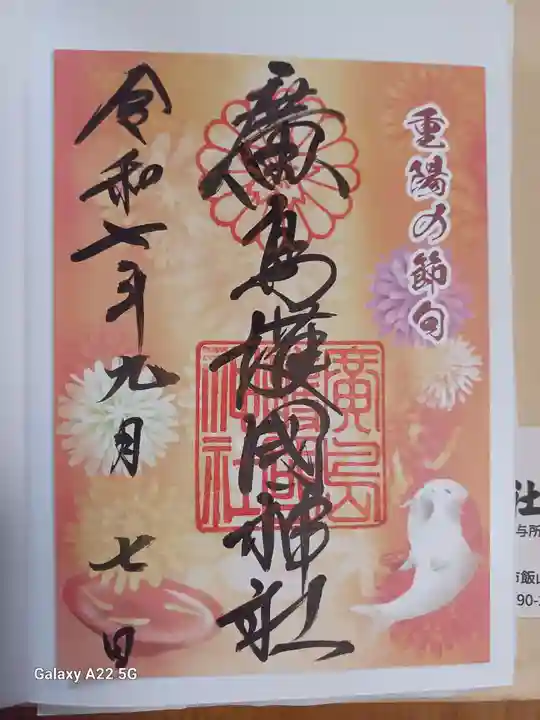 重陽の節句
廣島護國神社
廣島
護國
神社
令和七年九月七日
社
与所
市飯山
90-
Galaxy A22 5G